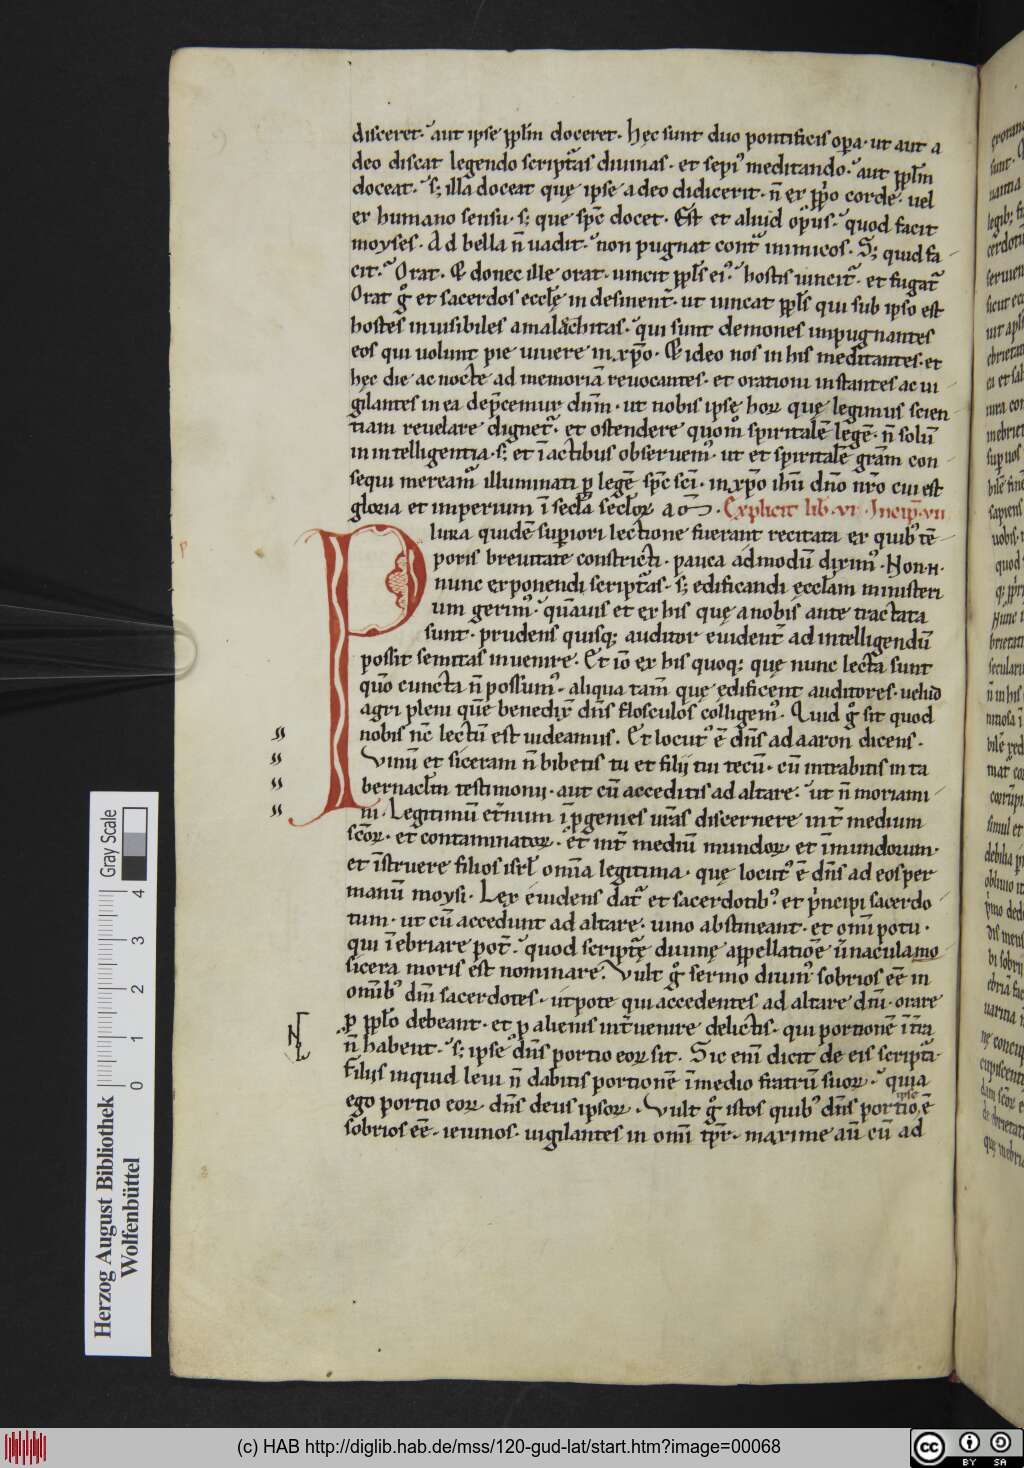 disceret. aut ipse ppl̅m doceret. hęc sunt duo pontificis op̲a. ut aut a
deo discat legendo script̾as diuinas. et sepi᾽ meditando. aut ppl̅m
doceat. s; illa doceat quę ipse a deo didicerit. n̅ ex pp̾o corde. uel
ex humano sensu. s; que sp̅c docet. Est et aliud op᾽us. quod facit
moyses. Ad bella n̅ uadit. non pugnat cont̾ inimicos. S; quid fa
cit. Orat. & donec ille orat. uincit ppl̅s ei᾽. hostis uincit̾. et fugat̾
Orat g̊ et sacerdos eccl̅ę indesinent̾. ut uincat ppl̅s qui sub ipso est
hostes inuisibiles amalachitas. qui sunt demones inpugnantes
eos qui uolunt pie uiuere in xp̅o. & ideo nos in his meditantes. et
hęc die ac nocte ad memoria̅ reuocantes. et orationi instantes ac ui
gilantes in ea dep̅cemur dn̅m. ut nobis ipse hoꝝ quę legimus scien
tiam reuelare dignet̾. et ostendere quom̊ spiritale̅ lege̅. n̅ solu̅
in intelligentia. s; et i̅ actibus obseruem᾽. ut et spiritale̅ gra̅m con
sequi meream̾ illuminati p̲ lege̅ sp̅c sc̅i. in xp̅o ih̅u dn̅o nr̅o cui est
gloria et imperium i̅ secla sec̅loꝝ am̅. Explicit lib̅. vi. Incip̅. vii
Plura quide̅ sup̲iori lectione fuerant recitata ex quib᾽ te̅
poris breuitate constricti. pauca admodu̅ dixim᾽. Non. n.
nunc exponendi script̾as. s; edificandi ęccl̅am ministeri
um gerim᾽. qua̅uis et ex his quę a nobis ante tractata
sunt. prudens quisq; auditor euident̾ ad intelligendu̅
possit semitas inuenire. Et io̅ ex his quoq; quę nunc lecta sunt
quo̅ cuncta n̅ possum᾽. aliqua tam̅ quę edificent auditores. uelud
agri pleni que̅ benedix̅ dn̅s flosculos colligem᾽. Quid g̊ sit quod
nobis nc̅ lectu̅ est uideamus. Et locut᾽ e̅ dn̅s ad aaron dicens.
Vinu̅ et siceram n̅ bibetis tu et filii tui tecu̅. cu̅ intrabitis in ta
bernacl̅m testimonii. aut cu̅ acceditis ad altare. ut n̅ moriami
ni. Legitimu̅ et̾num i̅ p̲genies ur̅as discernere int̾ medium
sc̅oꝝ. et contaminatoꝝ. et int̾ mediu̅ mundoꝝ. et i̅mundorum.
et i̅struere filios isrl̅ om̅ia legitima. quę locut᾽ e̅ dn̅s ad eos per
manu̅ moysi. Lex euidens dat̾ et sacerdotib᾽. et p̾ncipi sacerdo
tum. ut cu̅ accedunt ad altare. uino abstineant. et om̅i potu.
qui i̅ebriare pot̅. quod script̾ę diuinę appellatio̅e u̾nacula mo
sicera moris est nominare. Vult g̊ sermo diuin᾽ sobrios e̅e in
om̅ib᾽ dn̅i sacerdotes. utpote qui accedentes ad altare dn̅i. orare
p̲ ppl̅o debeant. et p̲ alienis int̾uenire delictis. qui portione̅ i̅ t̅ra
n̅ habent. s; ipse dn̅s portio eoꝝ sit. Sic eni̅ dicit de eis script̾a.
Filiis inquid leui n̅ dabitis portione̅ i̅ medio fratru̅ suoꝝ. quia
ego portio eoꝝ. dn̅s deus ipsoꝝ. Vult g̊ istos quib᾽ dn̅s portio ipse e̅
sobrios e̅e. ieiunos. uigilantes in om̅i tp̅r. maxime au̅ cu̅ ad
Gray Scale
4 3 2 1 0
Herzog August Bibliothek
Wolfenbüttel
(c) HAB http://diglib.hab.de/mss/120-gud-lat/start.htm?image=00068
cc BY SA